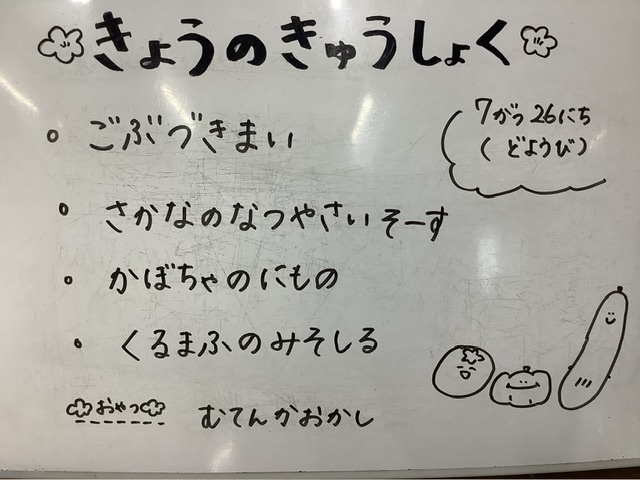 きょうのきゅうしょく
7がつ26にち
(どようび)
ごぶづきまい
さかなのなつやさいそーす
かぼちゃのにもの
くるまふのみそしる
おやつ むてんかおかし